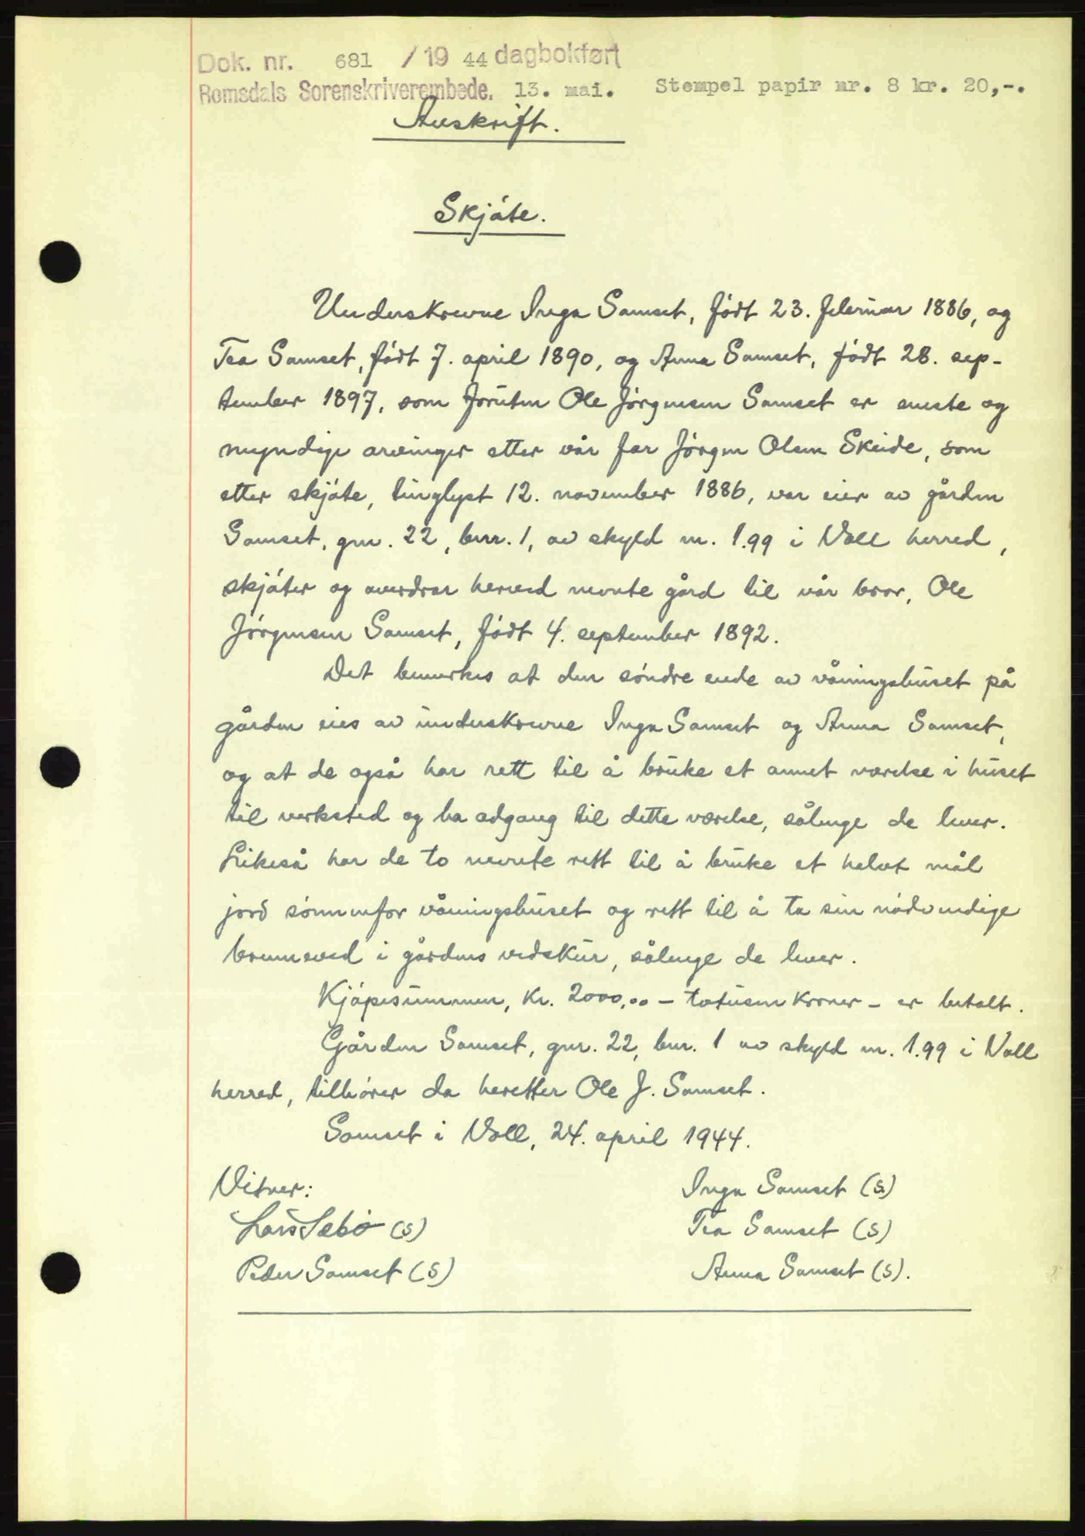 Dok. nr. 681 / 19 44 dagbokført
Romsdals Sorenskriverembede. 13. mai. Stempel papir nr. 8 kr. 20,-.
Avskrift.
Skjøte.
Underskrevne Inga Samset, født 23. februar 1886, og
Tea Samset, født 7. april 1890, og Anna Samset, født 28. sep-
tember 1897, som foruten Ole Jørgensen Samset er eneste og
myndige arvinger etter vår far Jørgen Olsen Skeide, som
etter skjøte, tinglyst 12. november 1886, var eier av gården
Samset, gnr. 22, bnr. 1, av skyld m. 1.99 i Voll herred,
skjøter og overdrar herved nevnte gård til vår bror, Ole
Jørgensen Samset, født 4. september 1892.
Det bemerkes at den søndre ende av våningshuset på
gården eies av underskrevne Inga Samset og Anna Samset,
og at de også har rett til å bruke et annet værelse i huset
til verksted og ha adgang til dette værelse, sålenge de lever.
Likeså har de to nevnte rett til å bruke et halvt mål
jord sønnenfor våningshuset og rett til å ta sin nødvendige
brenneved i gårdens vedskur, sålenge de lever.
Kjøpesummen, kr. 2000,00 - totusen kroner - er betalt.
Gården Samset, gnr. 22, bnr. 1 av skyld m. 1.99 i Voll
herred, tilhører da heretter Ole J. Samset.
Samset i Voll, 24. april 1944.
Vitner: Inga Samset (s)
Lars Sebø (s) Tea Samset (s)
Peder Samset (s) Anna Samset (s).